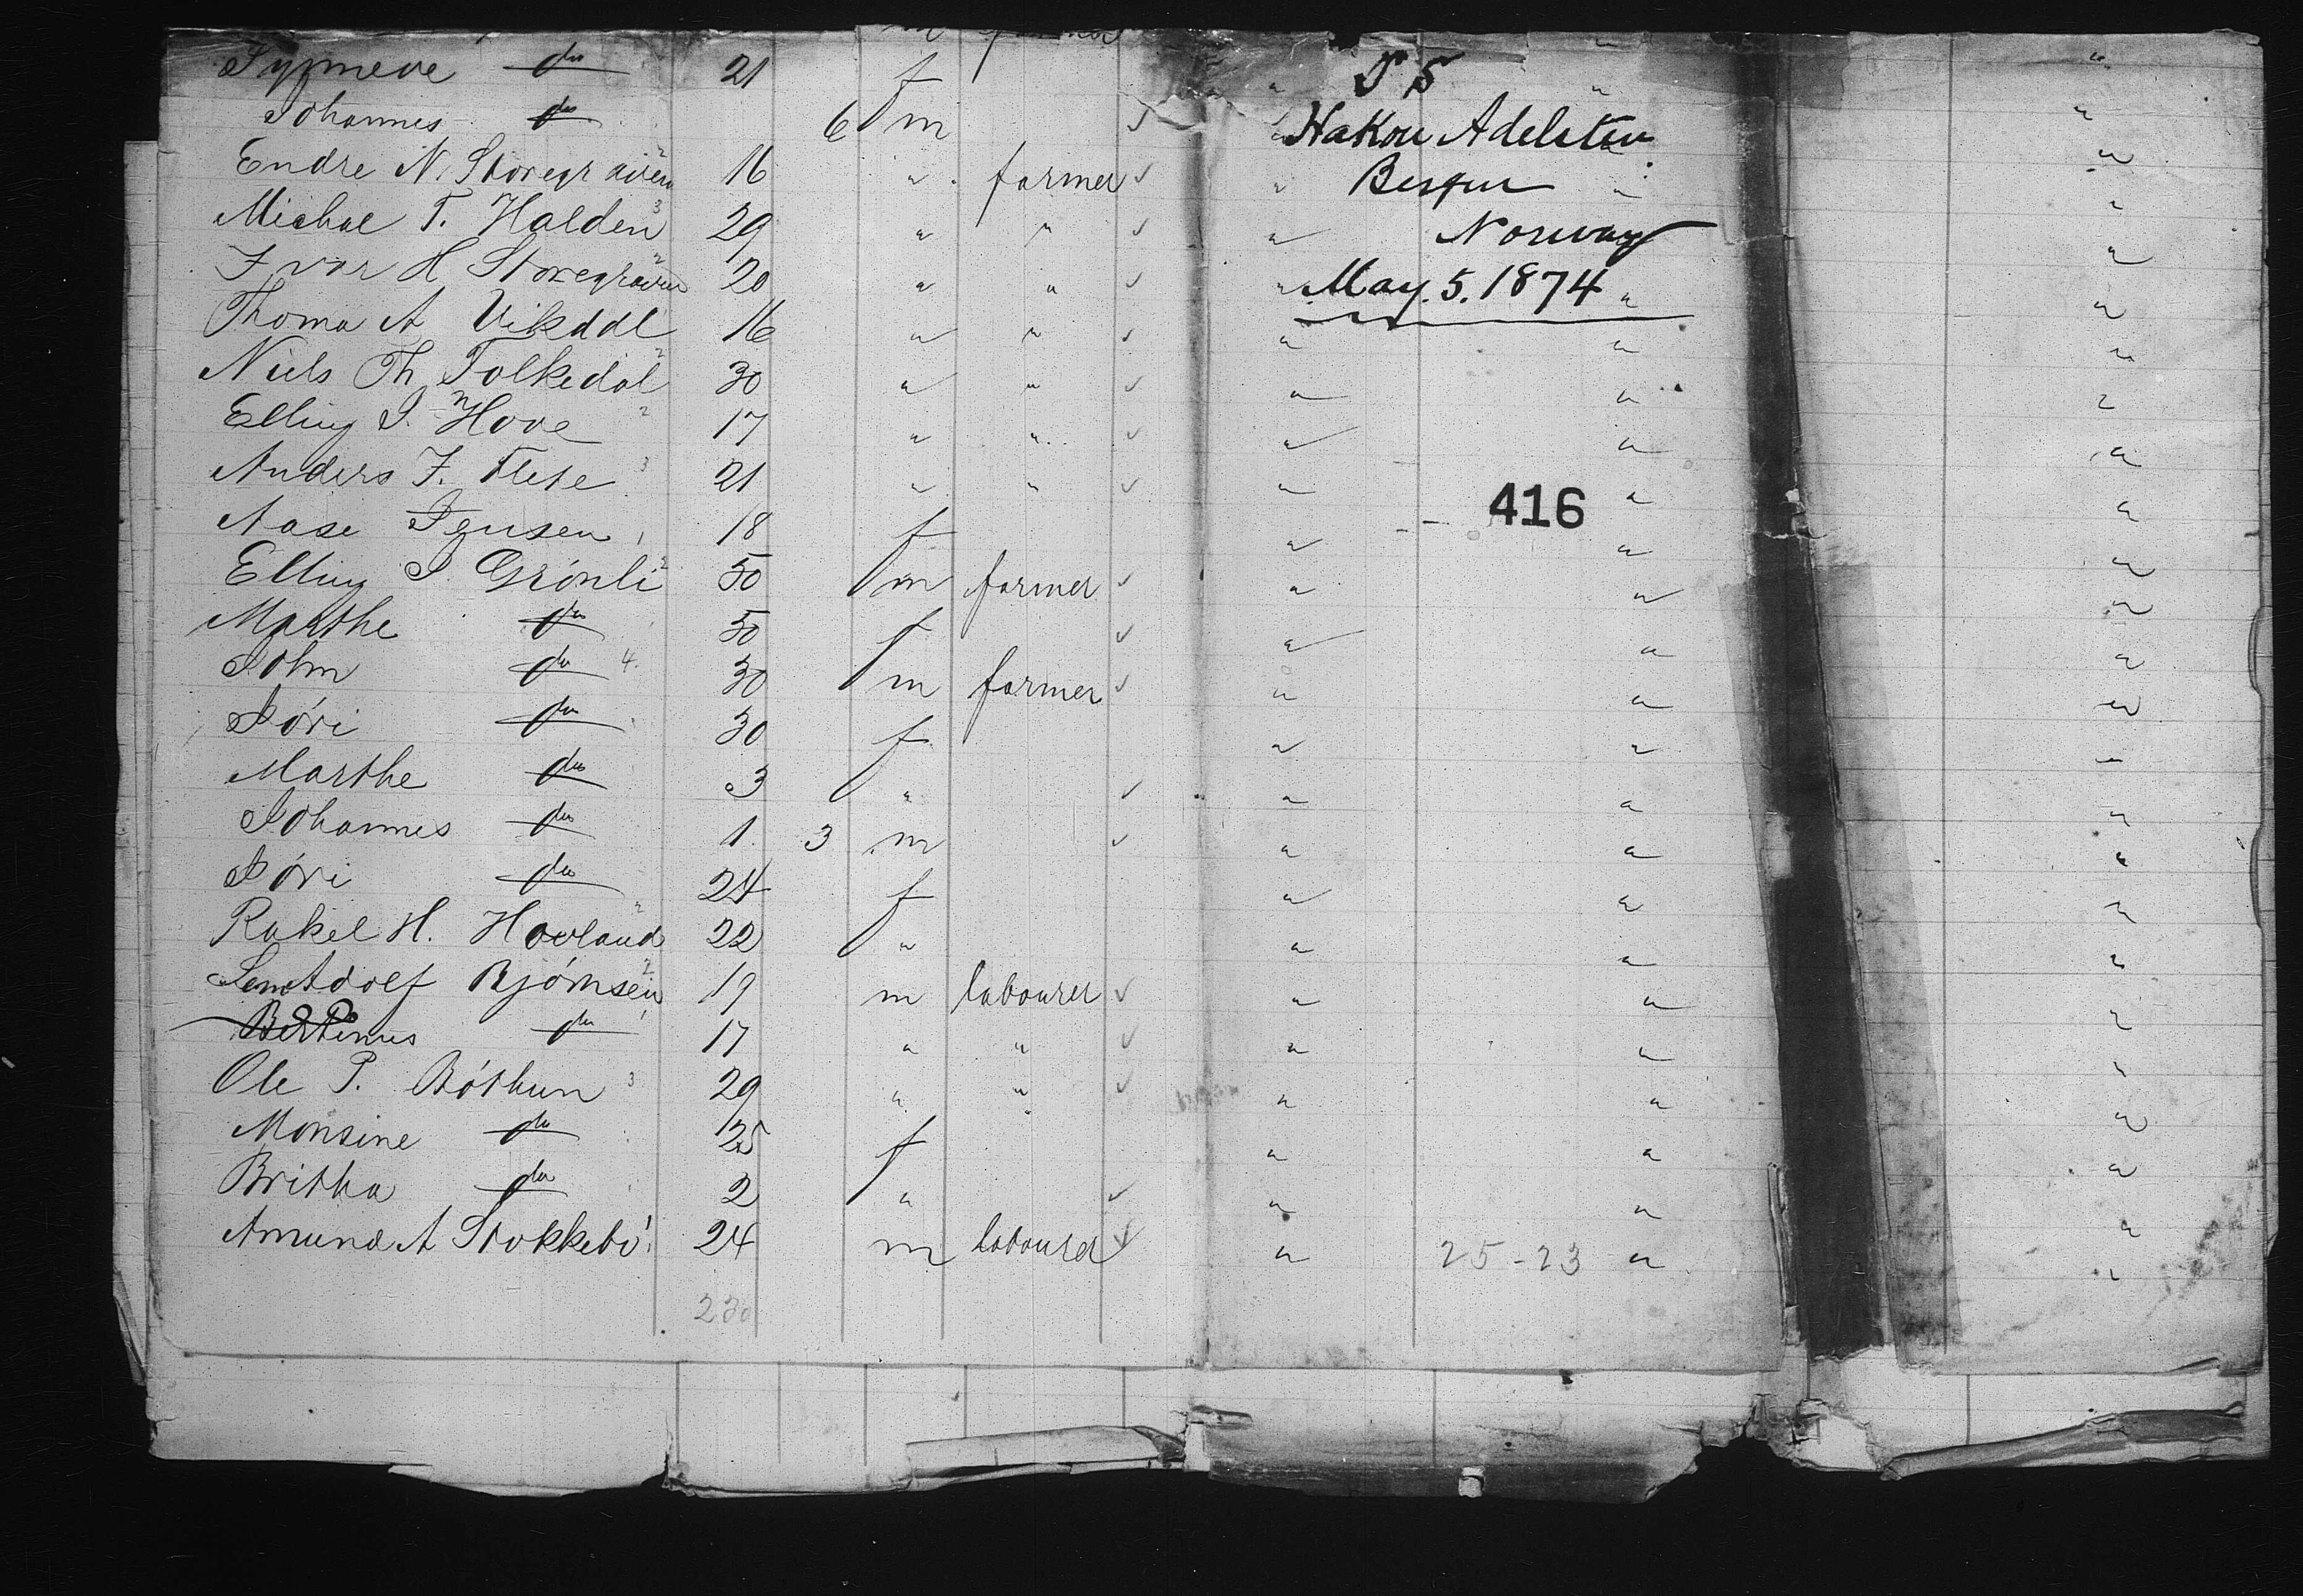 Synneve do 21 f " "
Johannes do 6 m ✓ " "
Endre N. 16 " farmer ✓ " "
Michael T. Halden 3 29 " " ✓ " "
Ivar H 2 20 " " ✓ " "
Thoma A Vikdal 16 " " ✓ " "
Niels Th Tolkedal 2 30 " " ✓ " "
Elling S. Hove 2 17 " " ✓ " "
Anders J. Flete 3 21 " " ✓ " "
Aase Jensen 1 18 f " "
Elling S Grónli 2 50 m farmer ✓ " "
Marthe do 50 f ✓ " "
John do 4. 30 m farmer ✓ " "
Sóri do 30 f " "
Marthe do 3 " ✓ " "
Johannes do 1. 3 m ✓ " "
Sóri do 24 f " "
Rakel H. Hovland 2 22 " " "
Adolf Bjórnsen 2 19 m labourer ✓ " "
Bertinus do 1 17 " " ✓ " "
Ole P. Bóthun 3 29 " " ✓ " "
Monsine do 25 f " "
Britha do 2 " ✓ " "
Amund A Stokkebó 1 24 m labourer ✓ " 25-23 "
230
S 5
Hakon Adelsten
Bergen
Norway
May. 5. 1874
416